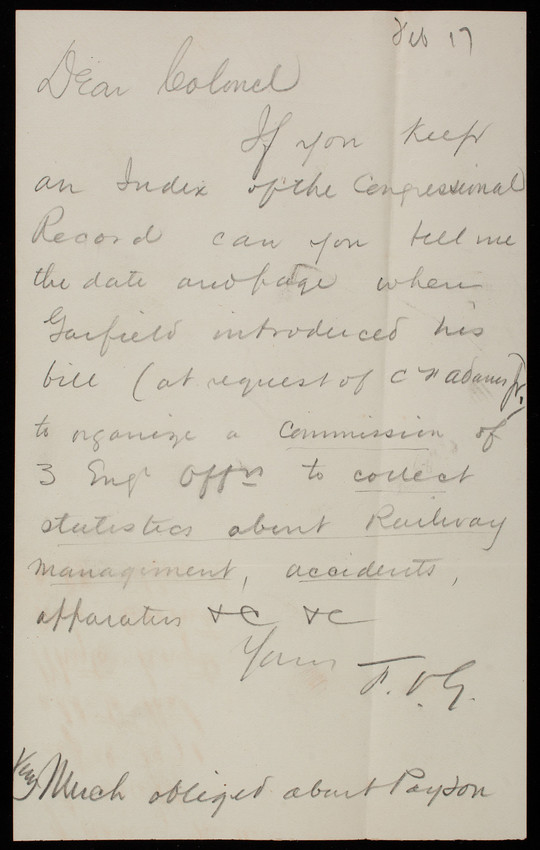 Feb 17
Dear Colonel
If you keep
an Index of the Congressional
Record can you tell me
the date and page when
Garfield introduced his
bill (at request of C F Adams Jr.
to organize a Commission of
3 Engr Offrs to collect
statistics about Railway
management, accidents,
apparatus &C &C
Yours
F.V.G.
Very Much obliged about Payson